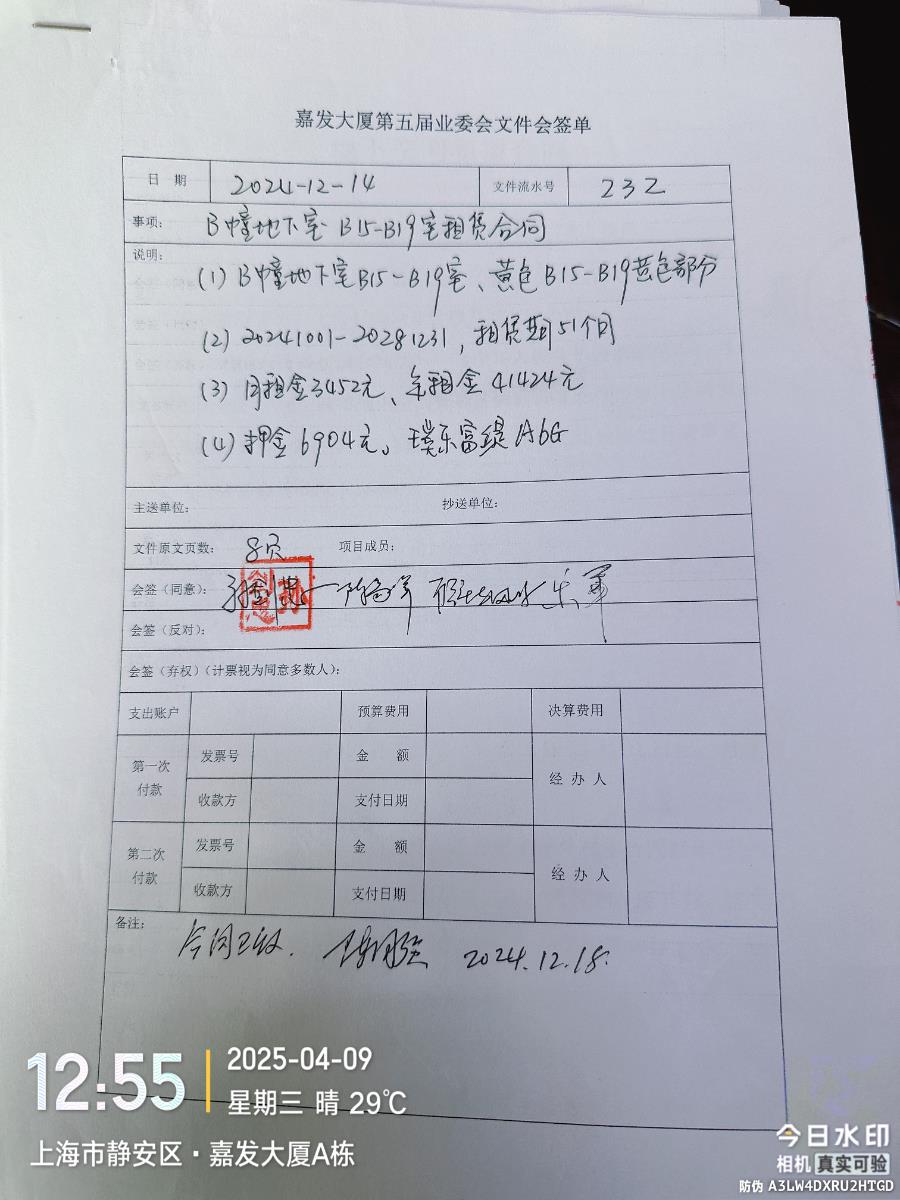 嘉发大厦第五届业委会文件会签单
日 期 2024-12-14 文件流水号 232
事项: B幢地下室B15-B19室租赁合同
说明:
(1) B幢地下室B15-B19室、黄色B15-B19黄色部分
(2) 20241001-20281231,租赁期51个月
(3) 月租金3452元、年租金41424元
(4) 押金6904元。璞乐富缇A6G
主送单位: 抄送单位:
文件原文页数: 8页 项目成员:
会签(同意):
会签(反对):
会签(弃权)(计票视为同意多数人):
支出账户 预算费用 决算费用
第一次付款 发票号 金 额 经 办 人
收款方 支付日期
第二次付款 发票号 金 额 经 办 人
收款方 支付日期
备注:
合同已收. 2024.12.18.
12:55 2025-04-09
星期三 晴 29℃
上海市静安区·嘉发大厦A栋
今日水印
相机 真实可验
防伪 A3LW4DXRU2HTGD